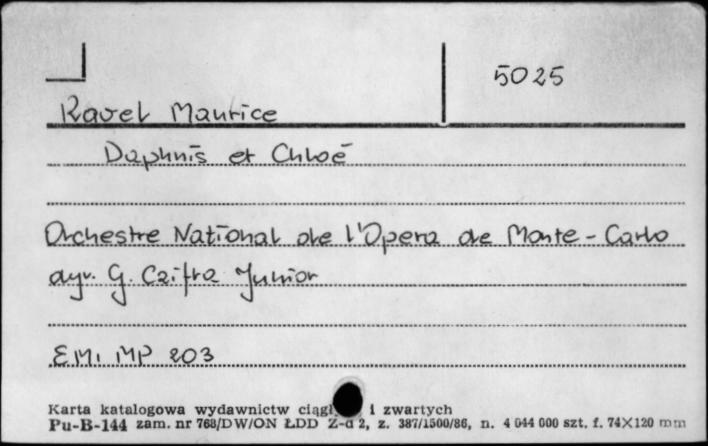 5025
Ravel Maurice
Daphnis et Chloé
Orchestre National de l'Opera de Monte-Carlo
dyr. G. Cziffra Junior
EMI MP 203
Karta katalogowa wydawnictw i zwartych
Pu-B-144 zam. nr 768/DW/ON ŁDD Z-d 2, z. 387/1500/86, n. 4 044 000 szt. f. 74×120 mm